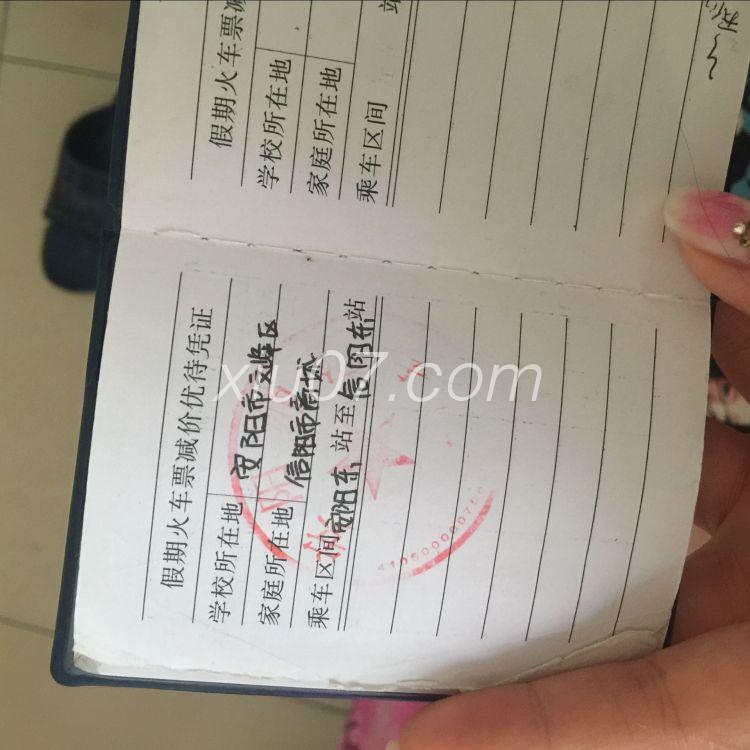 假期火车票减
学校所在地
家庭所在地
乘车区间 站
假期火车票减价优待凭证
学校所在地 安阳市文峰区
家庭所在地 信阳市商城
乘车区间 安阳东 站至 信阳东 站
4105000007
xiu07.com